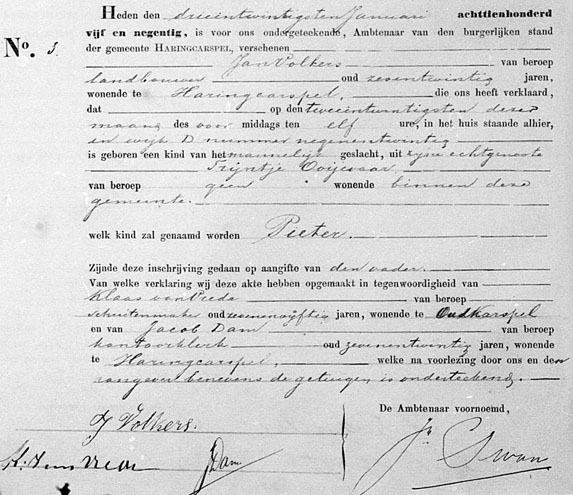 Heden den drieëntwintigsten Januari achttienhonderd
vijf en negentig, is voor ons ondergeteekende, Ambtenaar van den burgerlijken stand
No. 3. der gemeente HARINGCARSPEL, verschenen
Jan Volkers van beroep
landbouwer oud zesentwintig jaren,
wonende te Haringcarspel, die ons heeft verklaard,
dat op den tweeëntwintigsten dezer
maand des voor middags ten elf ure, in het huis staande alhier,
in wijk D nummer negenentwintig
is geboren een kind van het mannelijk geslacht, uit zijne echtgenoote
Trijntje Ooijevaar
van beroep geen wonende binnen deze
gemeente.
welk kind zal genaamd worden Pieter.
Zijnde deze inschrijving gedaan op aangifte van den vader.
Van welke verklaring wij deze akte hebben opgemaakt in tegenwoordigheid van
Klaas van Vrede van beroep
schuitenmaker oud zesenvijftig jaren, wonende te Oudkarspel
en van Jacob Dam van beroep
kantoorklerk oud zevenentwintig jaren, wonende
te Haringcarspel, welke na voorlezing door ons en den
aangever benevens de getuigen is onderteekend.
De Ambtenaar voornoemd,
J Volkers.
Js Swan
K: van Vrede JDam